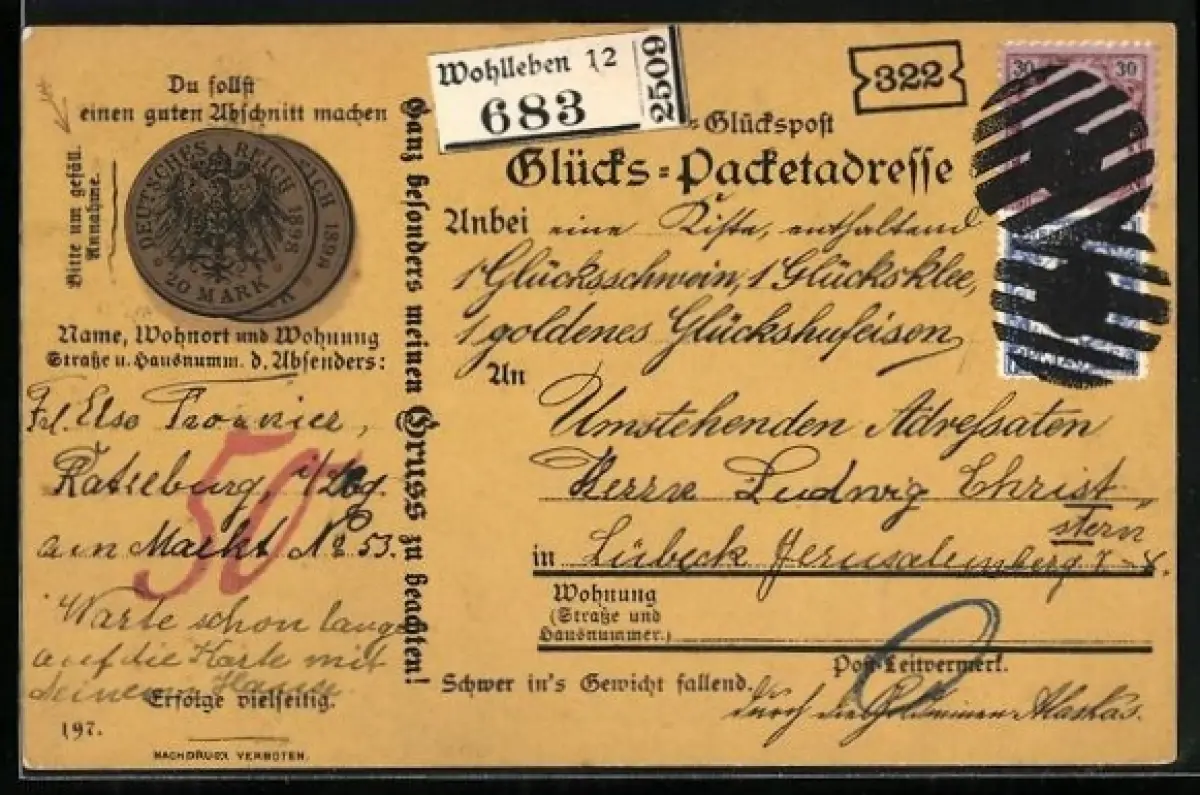 Du sollst
einen guten Abschnitt machen
Bitte um gefäll.
Annahme.
DEUTSCHES REICH 1898
20 MARK
ICH 1898
MARK
Name, Wohnort und Wohnung
Straße u. Hausnumm. d. Absenders:
Frl. Else
50
am Markt No. 53.
Warte schon lange
auf die Karte mit
Erfolge vielseitig.
197.
NACHDRUCK VERBOTEN.
Ganz besonders meinen Gruss zu beachten!
Wohlleben 12
683
2509
322
30 30
=Glückspost
Glücks=Packetadresse
Anbei eine Kiste, enthaltend
1 Glücksschwein, 1 Glücksklee,
1 goldenes Glückshufeisen
An
Umstehenden Adressaten
Herrn Ludwig Christ
stern
in Lübeck Jerusalemsberg
Wohnung
(Straße und
Hausnummer.)
Post-Leitvermerk.
Schwer in's Gewicht fallend.
durch die Goldminen Alaskas.